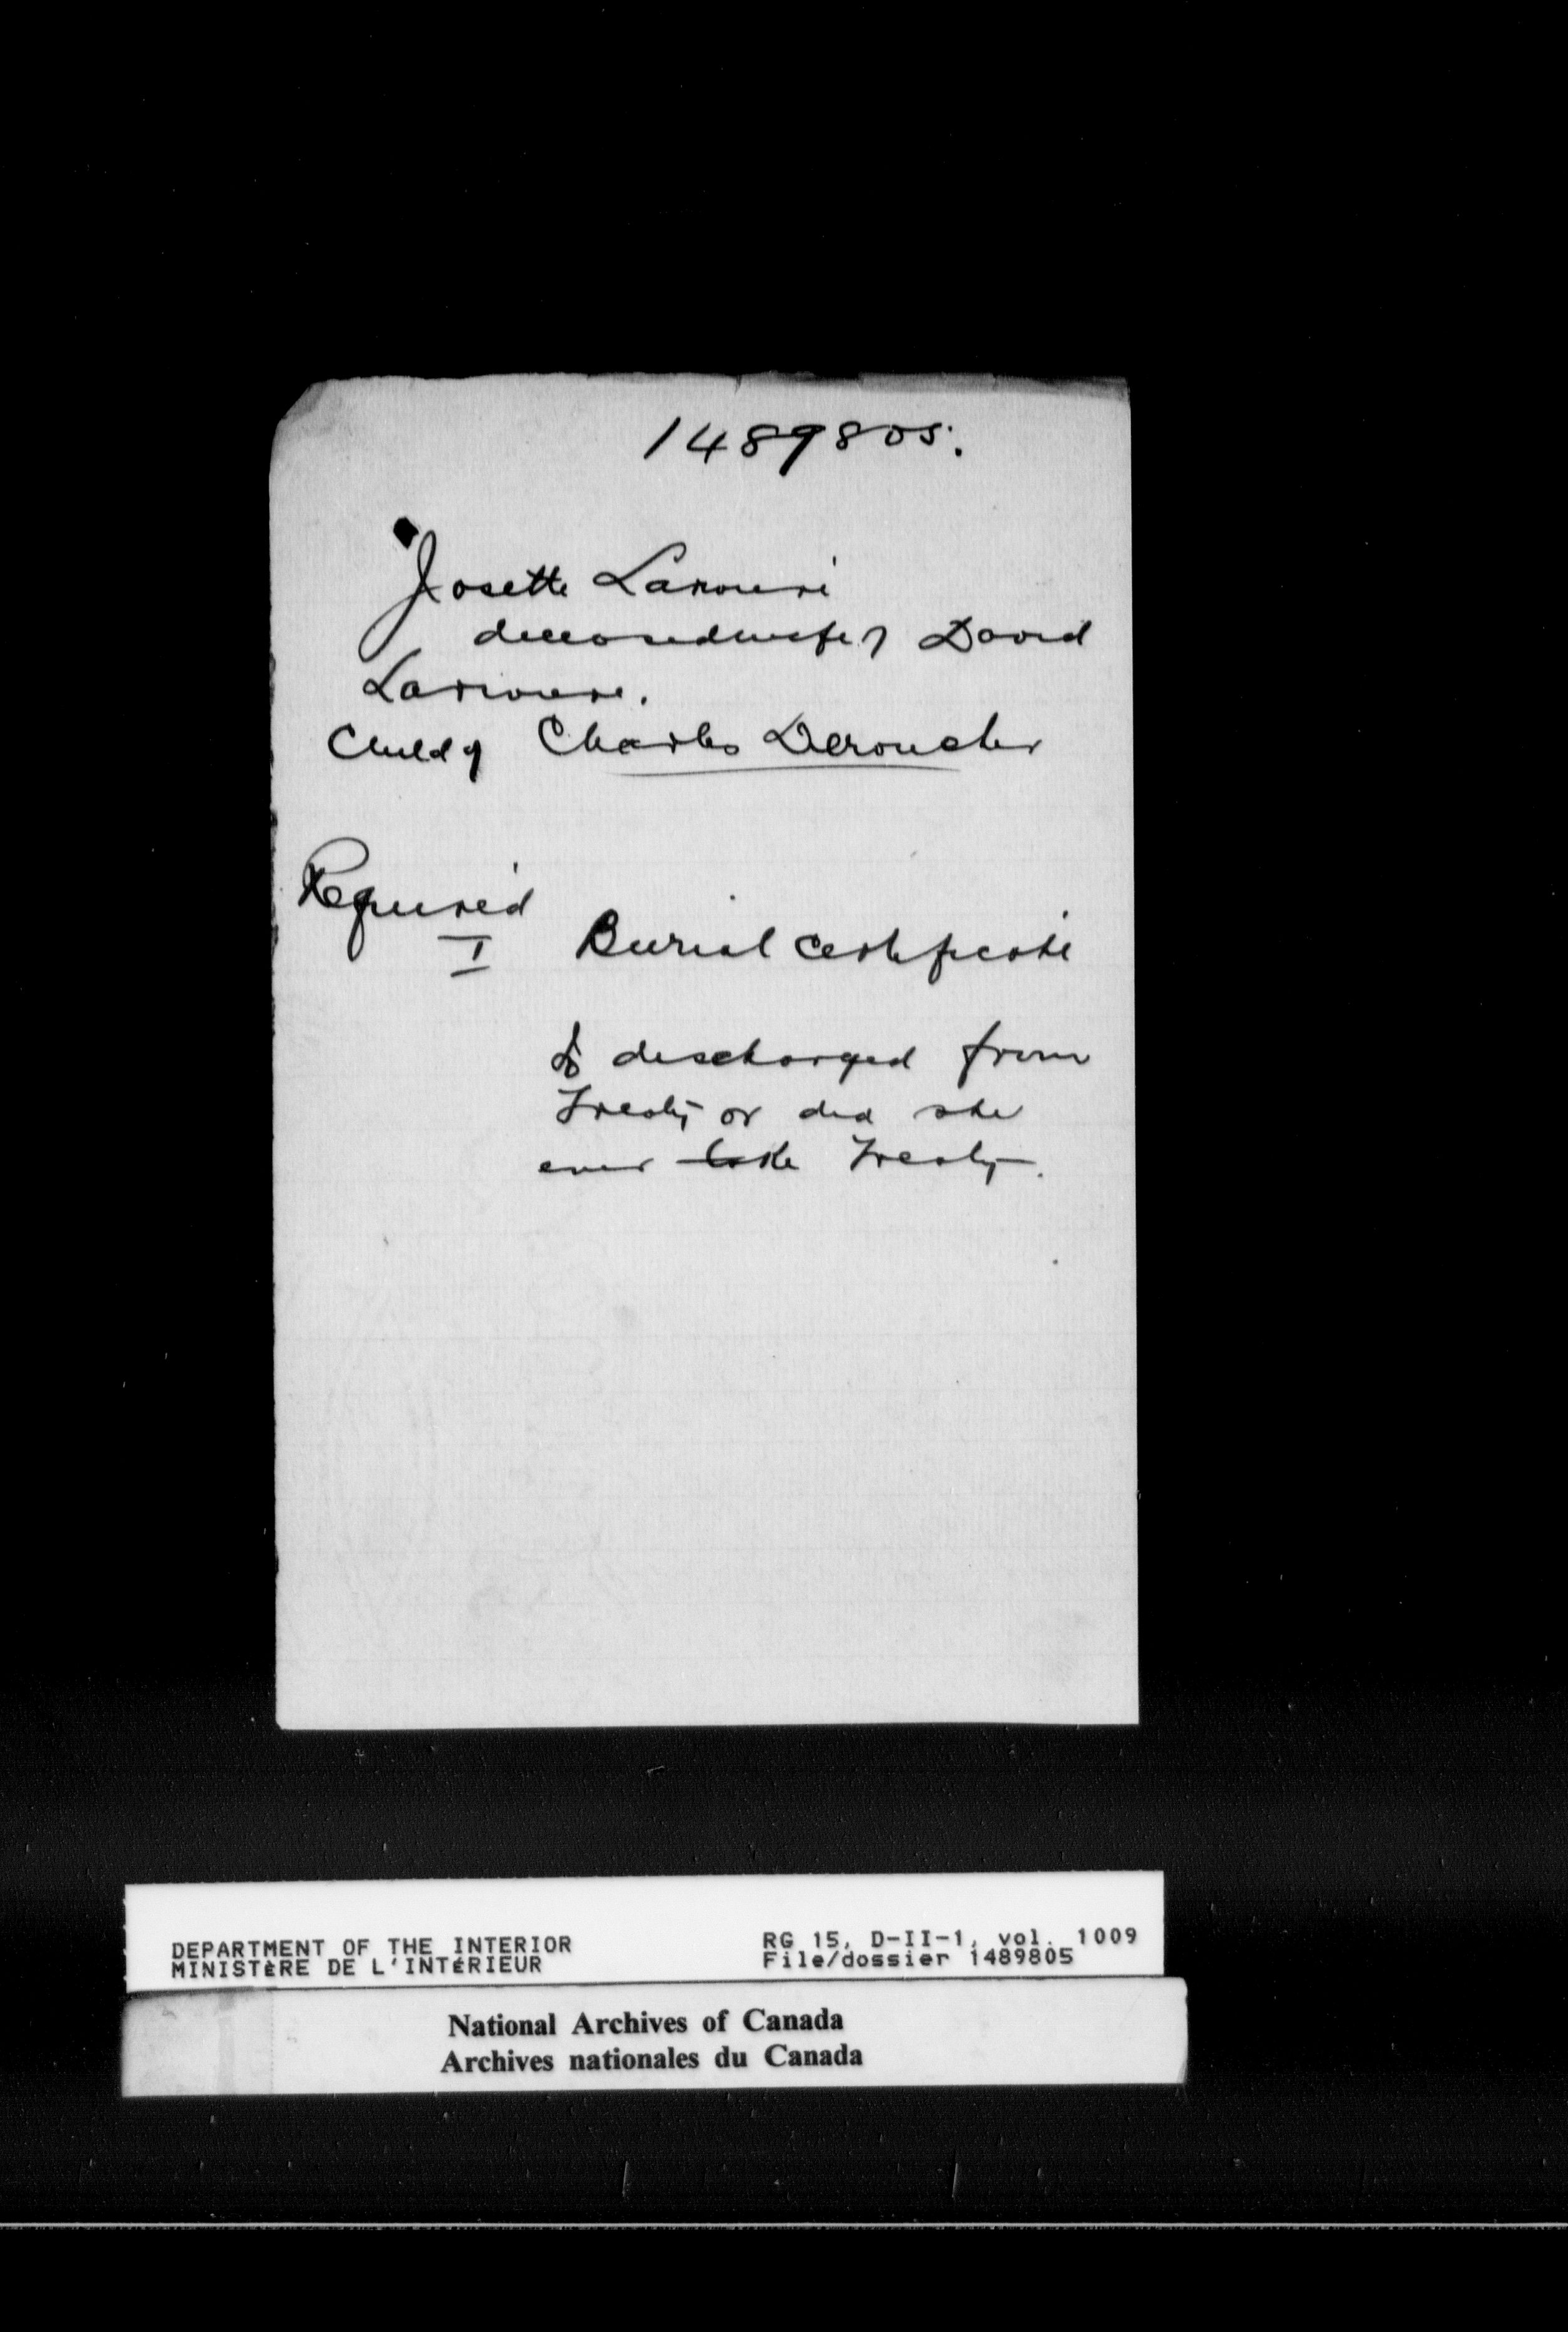 1489805.
Josette Lariviere
deceased wife of David
Lariviere.
Child of Charles Deroucher
Required
I Burial Certificate
discharged from
Treaty or did she
ever take Treaty.
DEPARTMENT OF THE INTERIOR RG 15, D-II-1, vol. 1009
MINISTÈRE DE L'INTÉRIEUR File/dossier 1489805
National Archives of Canada
Archives nationales du Canada